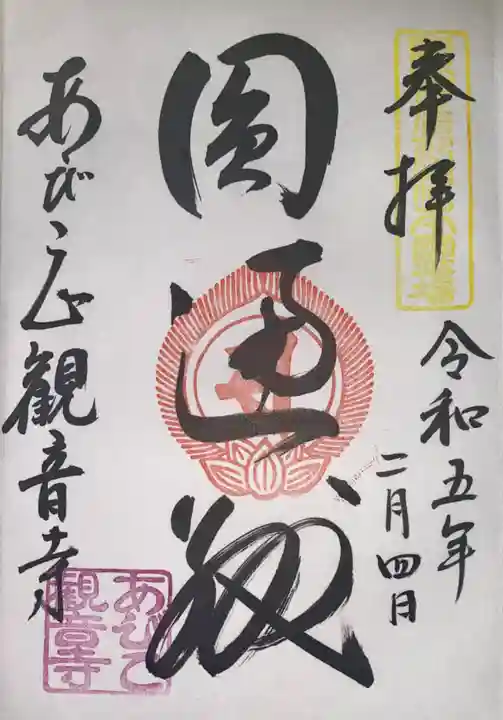 奉拝
令和五年
二月四日
圓通殿
あびこ山
観音寺
あびこ
観音寺